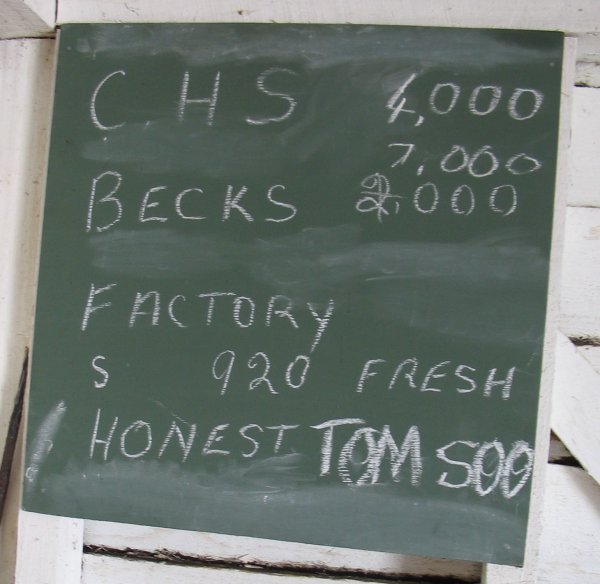 CHS 4,000
7,000
BECKS 2,000
FACTORY
S 920 FRESH
HONEST TOM 500